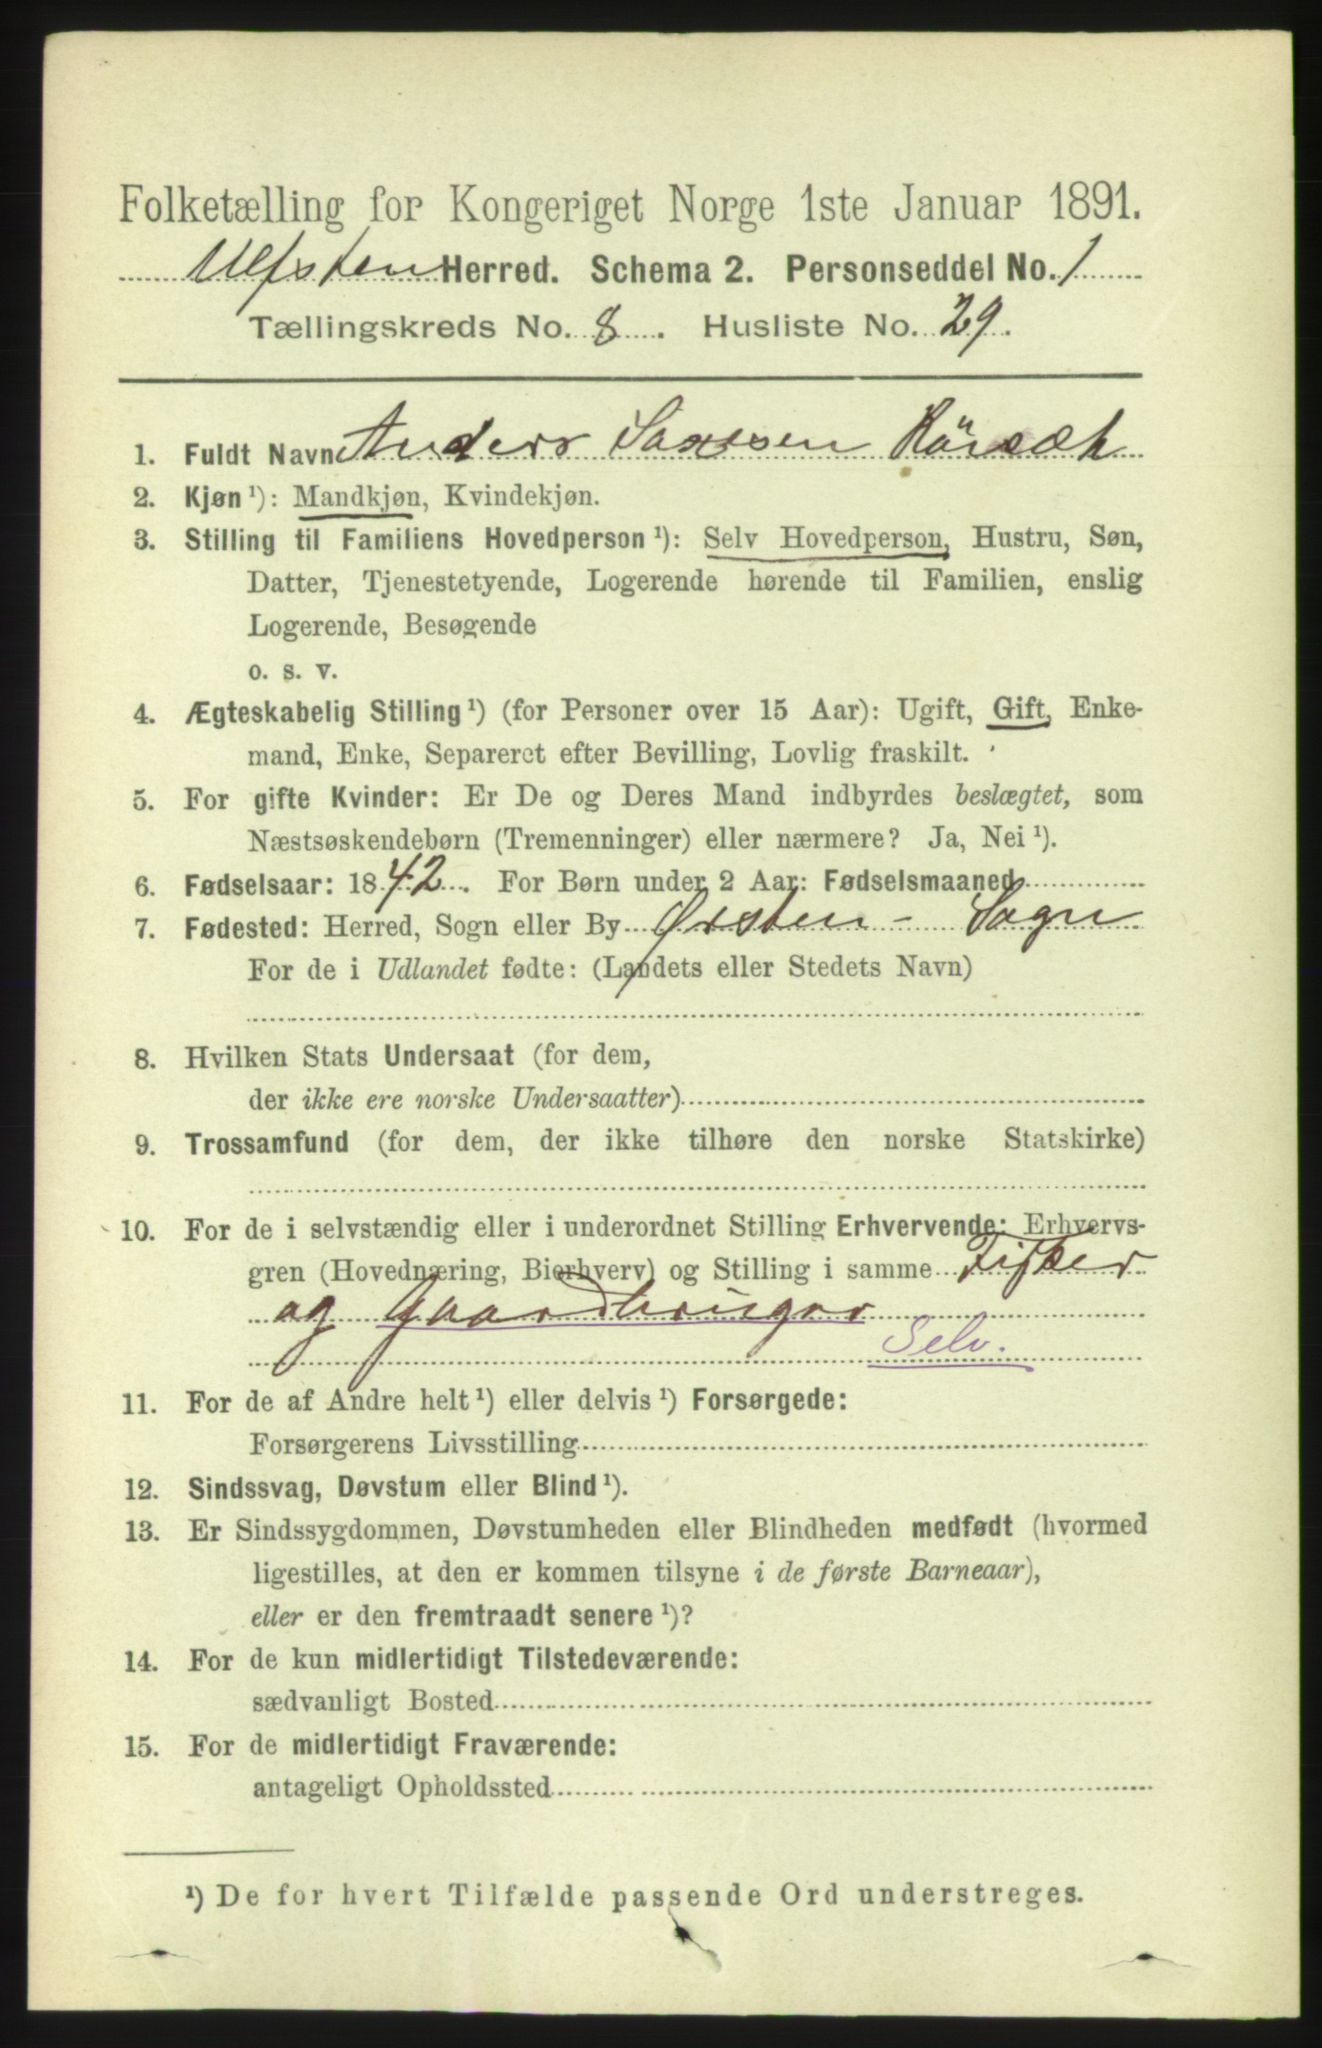 Folketælling for Kongeriget Norge 1ste Januar 1891.
Ulfsten Herred. Schema 2. Personseddel No. 1
Tællingskreds No. 8. Husliste No. 29.
1. Fuldt Navn Anders
2. Kjøn ¹): Mandkjøn, Kvindekjøn.
3. Stilling til Familiens Hovedperson ¹): Selv Hovedperson, Hustru, Søn,
Datter, Tjenestetyende, Logerende hørende til Familien, enslig
Logerende, Besøgende
o. s. v.
4. Ægteskabelig Stilling ¹) (for Personer over 15 Aar): Ugift, Gift, Enke-
mand, Enke, Separeret efter Bevilling, Lovlig fraskilt.
5. For gifte Kvinder: Er De og Deres Mand indbyrdes beslægtet, som
Næstsøskendebørn (Tremenninger) eller nærmere? Ja, Nei ¹).
6. Fødselsaar: 1842. For Børn under 2 Aar: Fødselsmaaned
7. Fødested: Herred, Sogn eller By Ørsten - Sogn
For de i Udlandet fødte: (Landets eller Stedets Navn)
8. Hvilken Stats Undersaat (for dem,
der ikke ere norske Undersaatter)
9. Trossamfund (for dem, der ikke tilhøre den norske Statskirke)
10. For de i selvstændig eller i underordnet Stilling Erhvervende: Erhvervs-
gren (Hovednæring, Bierhverv) og Stilling i samme Fisker
og Gaardbruger
Selv.
11. For de af Andre helt ¹) eller delvis ¹) Forsørgede:
Forsørgerens Livsstilling
12. Sindssvag, Døvstum eller Blind ¹).
13. Er Sindssygdommen, Døvstumheden eller Blindheden medfødt (hvormed
ligestilles, at den er kommen tilsyne i de første Barneaar),
eller er den fremtraadt senere ¹)?
14. For de kun midlertidigt Tilstedeværende:
sædvanligt Bosted
15. For de midlertidigt Fraværende:
antageligt Opholdssted
¹) De for hvert Tilfælde passende Ord understreges.